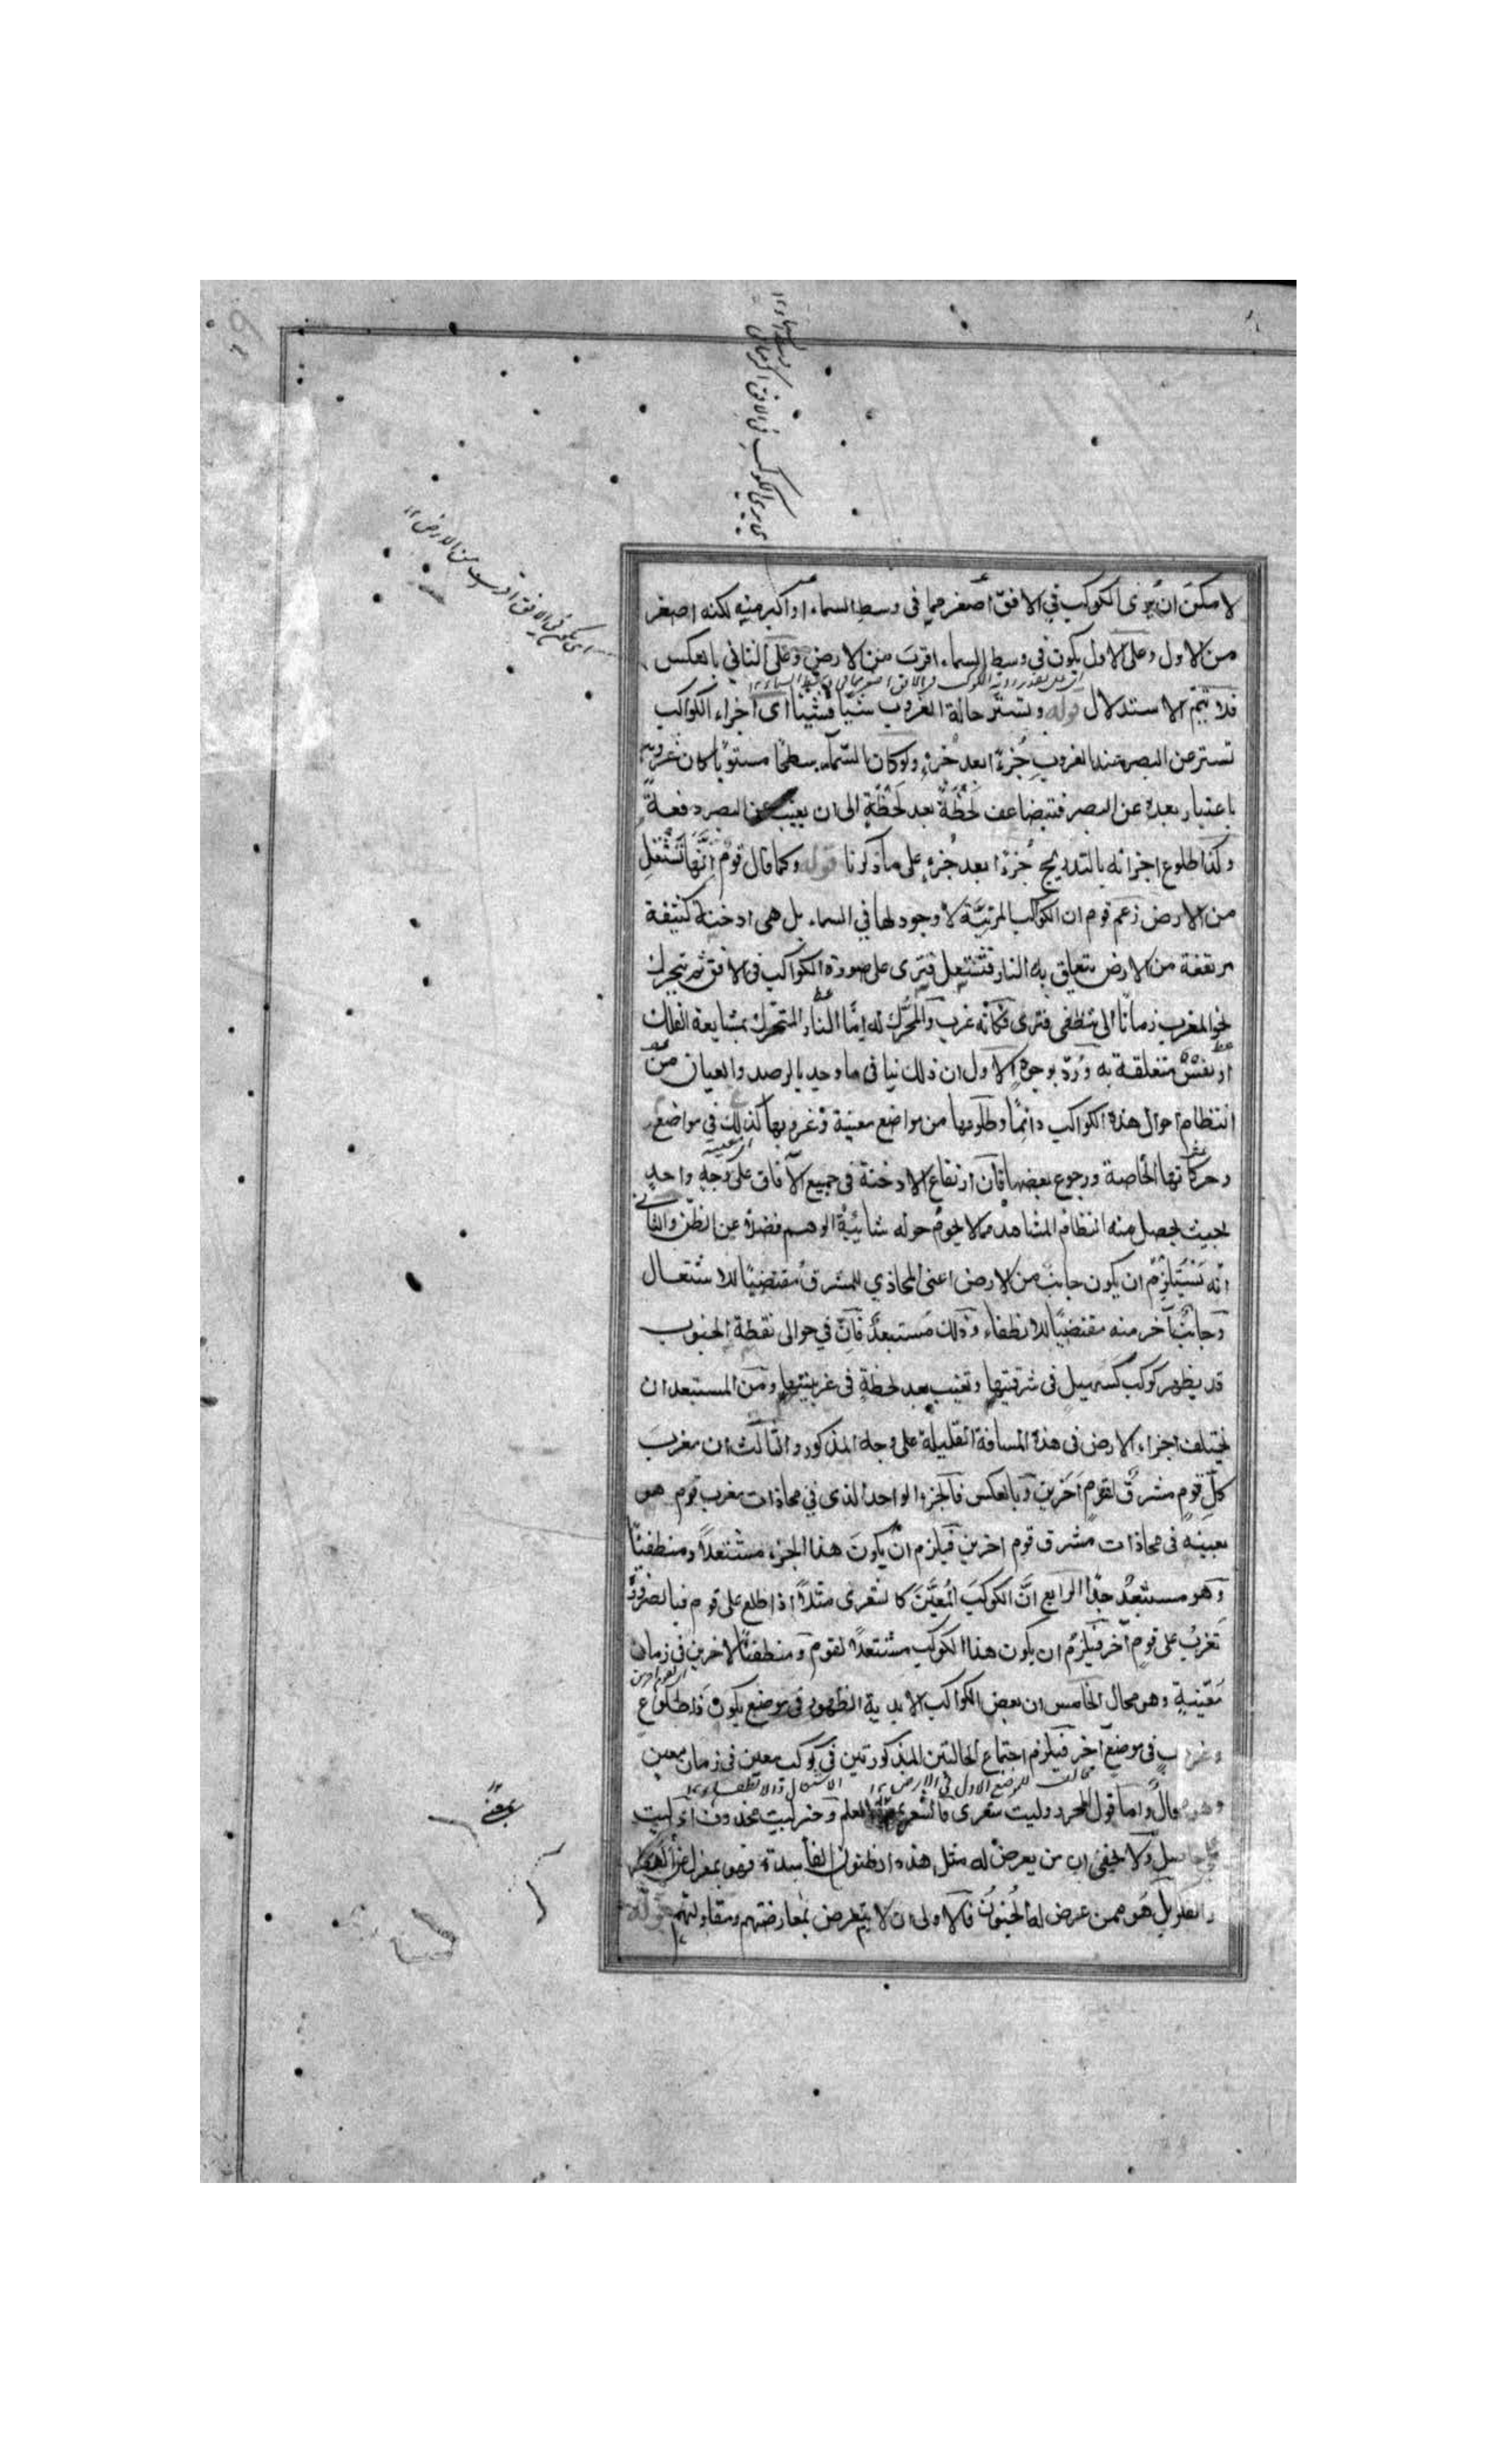 لا مكن ان يرى الكوكب في الافق اصغر مما في وسط السماء او اكبر منه لكنه اصغر
من الاول وعلى الاول يكون في وسط السماء اقرب من الارض وعلى الثاني بالعكس
فلا يتم الاستدلال قوله وتستتر حالة الغروب شيئا فشيئا اى اجزاء الكواكب
تستتر عن البصر عند الغروب جزءًا بعد جزء ولو كان السماء سطحًا مستويًا لكان غروبه
باعتبار بعده عن البصر فتبضاعف لحظة بعد لحظة الى ان يغيب عن البصر دفعة
وكذا طلوع اجزائه بالتدريج جزءًا بعد جزء على ما ذكرنا قوله وكما قال قوم انها تشتعل
من الارض زعم قوم ان الكواكب المرئية لا وجود لها في السماء بل هى ادخنة كثيفة
مرتفعة من الارض يتعلق به النار فتشتعل فترى على صورة الكواكب في الافق ثم تتحرك
نحو المغرب زمانًا الى تنطفى فترى كأنه غرب والمحرك له امّا النار المتحرك بمشايعة الفلك
او نفس متعلقة به ورُدّ بوجوه الاول ان ذلك ينافى ما وجد بالرصد والعيان من
انتظام احوال هذه الكواكب دائمًا وطلوعها من مواضع معينة وغروبها كذلك في مواضع
وحركاتها الخاصة ورجوع بعضها فان ارتفاع الادخنة في جميع الآفاق على وجه واحد
بحيث يحصل منه انتظام المشاهد مما لا يحوم حوله شائبة الوهم فضلا عن الظن والثانى
انه يستلزم ان يكون جانب من الارض اعنى المحاذي للمشرق مقتضيًا للاشتعال
وجانب آخر منه مقتضيًا للانطفاء وذلك مستبعد فان في حوالى نقطة الجنوب
قد يظهر كوكب كسهيل في شرقيتها وتغيب بعد لحظة في غربيتها ومن المستبعد ان
يختلف اجزاء الارض في هذه المسافة القليلة على وجه المذكور والثالث ان مغرب
كل قوم مشرق لقوم آخرين وبالعكس فالجزء الواحد الذى في محاذات مغرب قوم هو
بعينه في محاذات مشرق قوم اخرين فيلزم ان يكون هذا الجزء مشتعلاً ومنطفئًا
وهو مستبعد جدًا الرابع انّ الكوكب المعيّن كالشعرى مثلاً اذا طلع على قوم فبالضرورة
تغرب على قوم آخر فيلزم ان يكون هذا الكوكب مشتعلاً لقوم ومنطفئًا لاخرين في زمان
معينة وهو محال الخامس ان بعض الكواكب الابدية الظهور في موضع يكون ذا طلوع
وغروب في موضع آخر فيلزم اجتماع الحالتين المذكورتين في كوكب معين في زمان معين
وهو محال وامّا قول المحرر وليت شعرى فالشعر العلم وخبر ليت محذوف اى ليت
حاصل ولا يخفى ان من يعرض له مثل هذه الظنون الفاسدة فهو بمعزل عن
بل هو ممن عرض له الجنون فالاولى ان لا يتعرض بمعارضتهم ومقاولتهم قوله
اى يرى الكوكب في الافق اكبر مما في وسط السماء ١٢
اى يكون في الافق اقرب من الارض ١٢
اى على تقدير رؤية الكوكب في الافق اصغر مما في وسط السماء ١٢
اى معينة
اى لقوم آخرين
مخالف للموضع الاول في الارض ١٢
الاشتعال والانطفاء ١٢